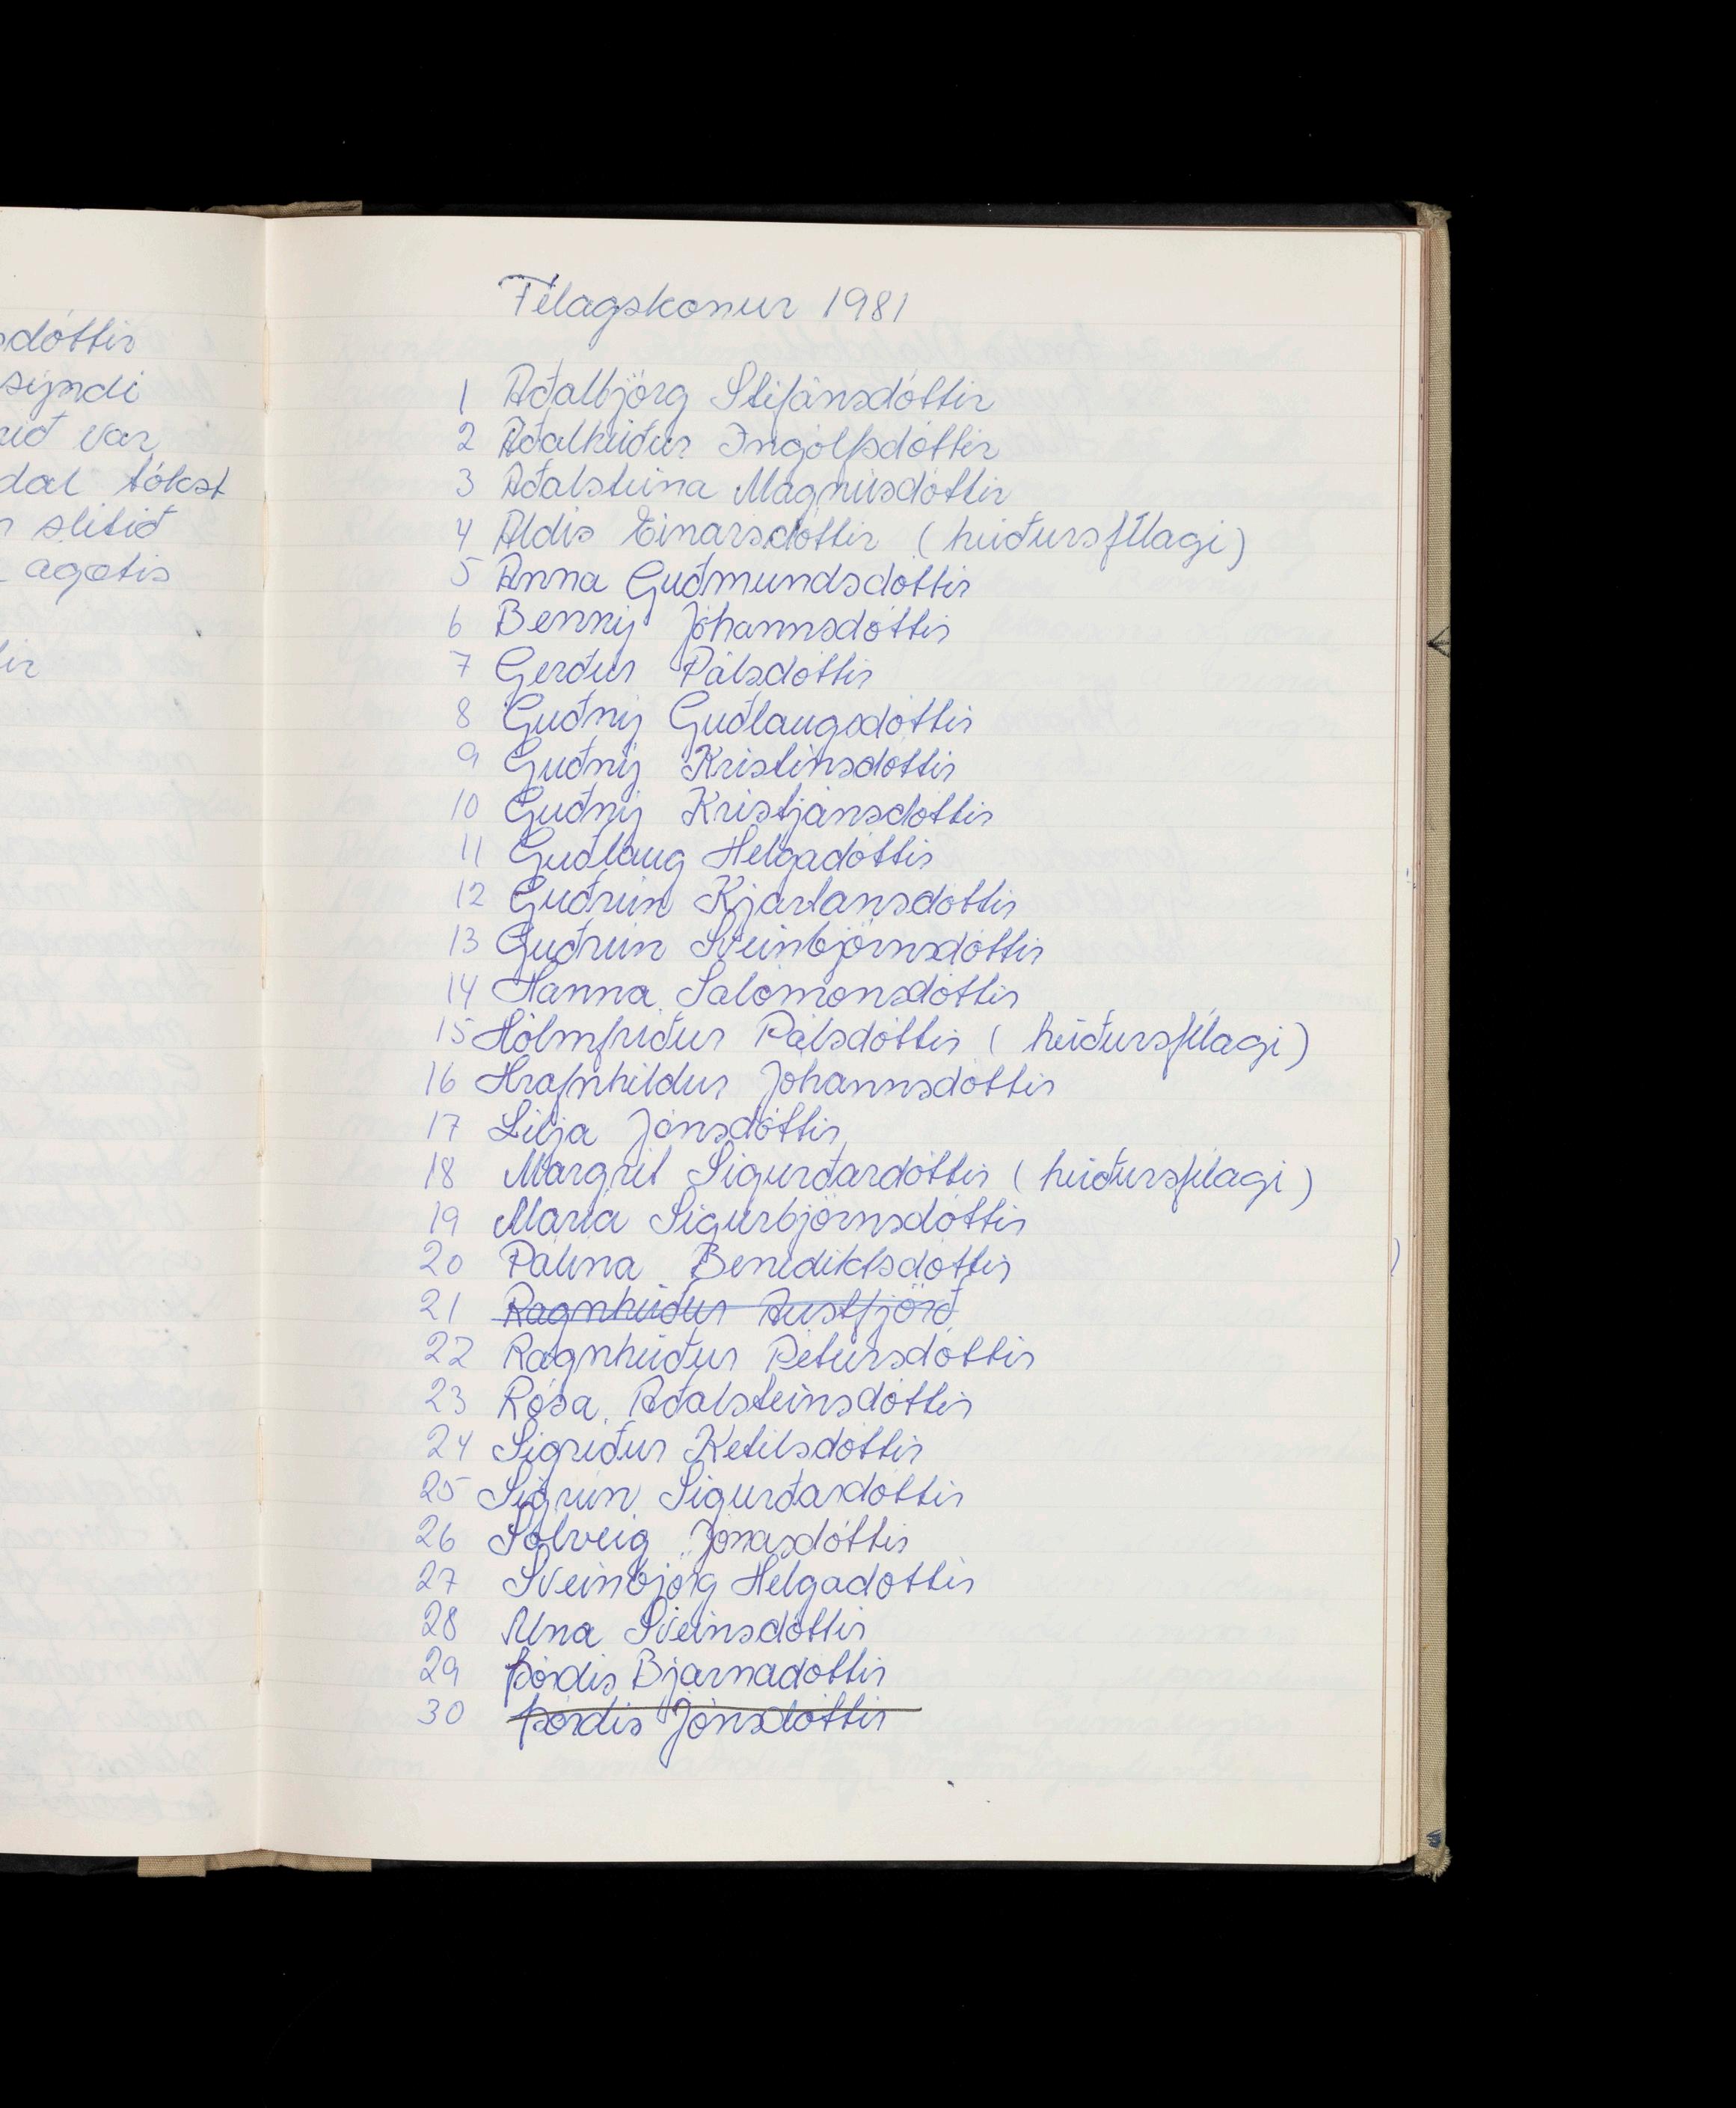 dóttir
sýndi
var
tókst
slitið
ágætis
Félagskonur 1981
1 Aðalbjörg Stefánsdóttir
2 Aðalheiður Ingólfsdóttir
3 Aðalsteina Magnúsdóttir
4 Aldís Einarsdóttir (heiðursfélagi)
5 Anna Guðmundsdóttir
6 Benný Jóhannsdóttir
7 Gerður Pálsdóttir
8 Guðný Guðlaugsdóttir
9 Guðný Kristinsdóttir
10 Guðný Kristjánsdóttir
11 Guðlaug Helgadóttir
12 Guðrún Kjartansdóttir
13 Guðrún Sveinbjörnsdóttir
14 Hanna Salómonsdóttir
15 Hólmfríður Pálsdóttir (heiðursfélagi)
16 Hrafnhildur Jóhannsdóttir
17 Lilja Jónsdóttir
18 Margrét Sigurðardóttir (heiðursfélagi)
19 María Sigurbjörnsdóttir
20 Pálína Benediktsdóttir
21 Ragnheiður Austfjörð
22 Ragnheiður Pétursdóttir
23 Rósa Aðalsteinsdóttir
24 Sigríður Ketilsdóttir
25 Sigrún Sigurðardóttir
26 Sólveig Jónasdóttir
27 Sveinbjörg Helgadóttir
28 Una Sveinsdóttir
29 Þórdís Bjarnadóttir
30 Þórdís Jónsdóttir